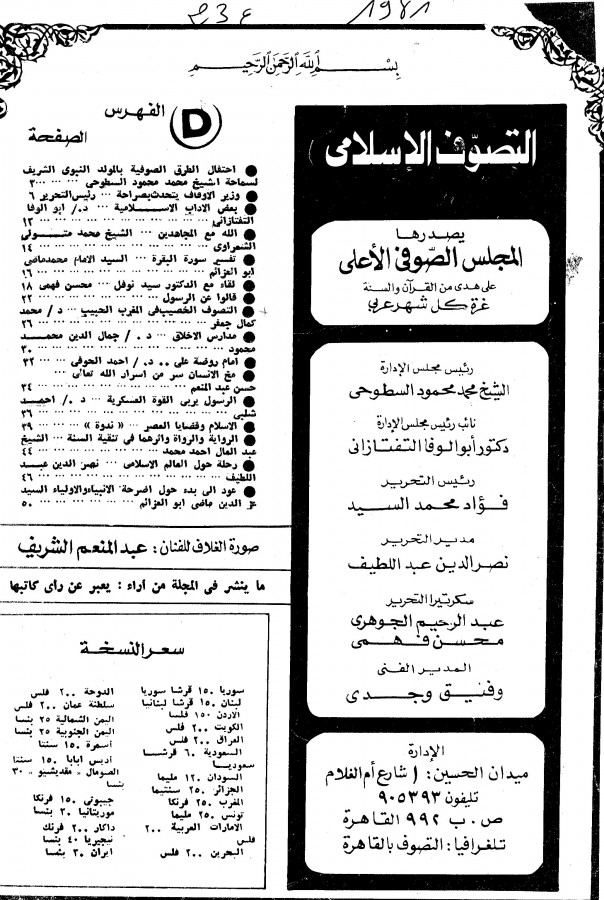 ٢٣٤ 1981
بسم الله الرحمن الرحيم
التصوف الإسلامى
يصدرها
المجلس الصوفى الأعلى
على هدى من القرآن والسنة
غرة كل شهر عربي
رئيس مجلس الإدارة
الشيخ محمد محمود السطوحى
نائب رئيس مجلس الإدارة
دكتور أبو الوفا التفتازانى
رئيس التحرير
فؤاد محمد السيد
مدير التحرير
نصر الدين عبد اللطيف
سكرتيرا التحرير
عبد الرحيم الجوهرى
محسن فهمى
المدير الفنى
وفنيق وجدى
الإدارة
ميدان الحسين: ١ شارع أم الغلام
تليفون ٩٠٥٣٩٣
ص . ب ٩٩٢ القاهرة
تلغرافيا: التصوف بالقاهرة
D
الفهرس
الصفحة
● احتفال الطرق الصوفية بالمولد النبوى الشريف
لسماحة الشيخ محمد محمود السطوحى ... ... ٣
● وزير الاوقاف يتحدث بصراحة ... رئيس التحرير ٦
● بعض الاداب الاسلامية ... د./ ابو الوفا
التفتازانى ... ١٣
● الله مع المجاهدين ... الشيخ محمد متولى
الشعراوى ... ١٤
● تفسير سورة البقرة ... السيد الامام محمد ماضى
ابو العزائم ... ١٦
● لقاء مع الدكتور سيد نوفل ... محسن فهمى ١٨
● قالوا عن الرسول ... ٢٢
● التصوف الخصيب فى المغرب الحبيب ... د/ محمد
كمال جعفر ... ٢٦
● مدارس الاخلاق ... د./ جمال الدين محمد
محمود ... ٣٠
● امام روضة على .. د./ احمد الحوفى ... ٣٢
● مخ الانسان سر من اسرار الله تعالى ...
حسن عبد المنعم ... ٣٤
● الرسول يربى القوة العسكرية ... د./ احمد
شلبى ... ٣٦
● الاسلام وقضايا العصر ... « ندوة » ... ٣٩
● الرواية والرواة واثرهما فى تنقية السنة ... الشيخ
عبد العال احمد محمد ... ٤٤
● رحلة حول العالم الاسلامى ... نصر الدين عبد
اللطيف ... ٤٦
● عود الى بدء حول اضرحة الانبياء والاولياء السيد
عز الدين ماضى ابو العزائم ... ٥٠
صورة الغلاف للفنان : عبد المنعم الشريف
ما ينشر فى المجلة من أراء : يعبر عن راى كاتبها
سعر النسخة
سوريا ١٥٠ قرشا سوريا
لبنان ١٥٠ قرشا لبنانيا
الاردن ١٥٠ فلسا
الكويت ٢٠٠ فلس
العراق ٢٠٠ فلس
السعودية ٦٠ قرشا
سعوديا
السودان ١٢٠ مليما
الجزائر ٢٥٠ سنتيما
المغرب ٢٥٠ فرنكا
تونس ٢٥٠ مليما
الامارات العربية ٢٠٠
فلس
البحرين ٢٠٠ فلس
الدوحة ٢٠٠ فلس
سلطنة عمان ٢٠٠ فلس
اليمن الشمالية ٢٥ بنسا
اليمن الجنوبية ٢٥ بنسا
أسمرة ١٥٠ سنتا
اديس ابابا ١٥٠ سنتا
الصومال « مقديشيو » ٣٠
بنسا
جيبوتى ١٥٠ فرنكا
موريتانيا ٣٠ بنسا
داكار ٢٠٠ فرنك
نيجيريا ٤٠ بنسا
ايران ٣٠ بنسا